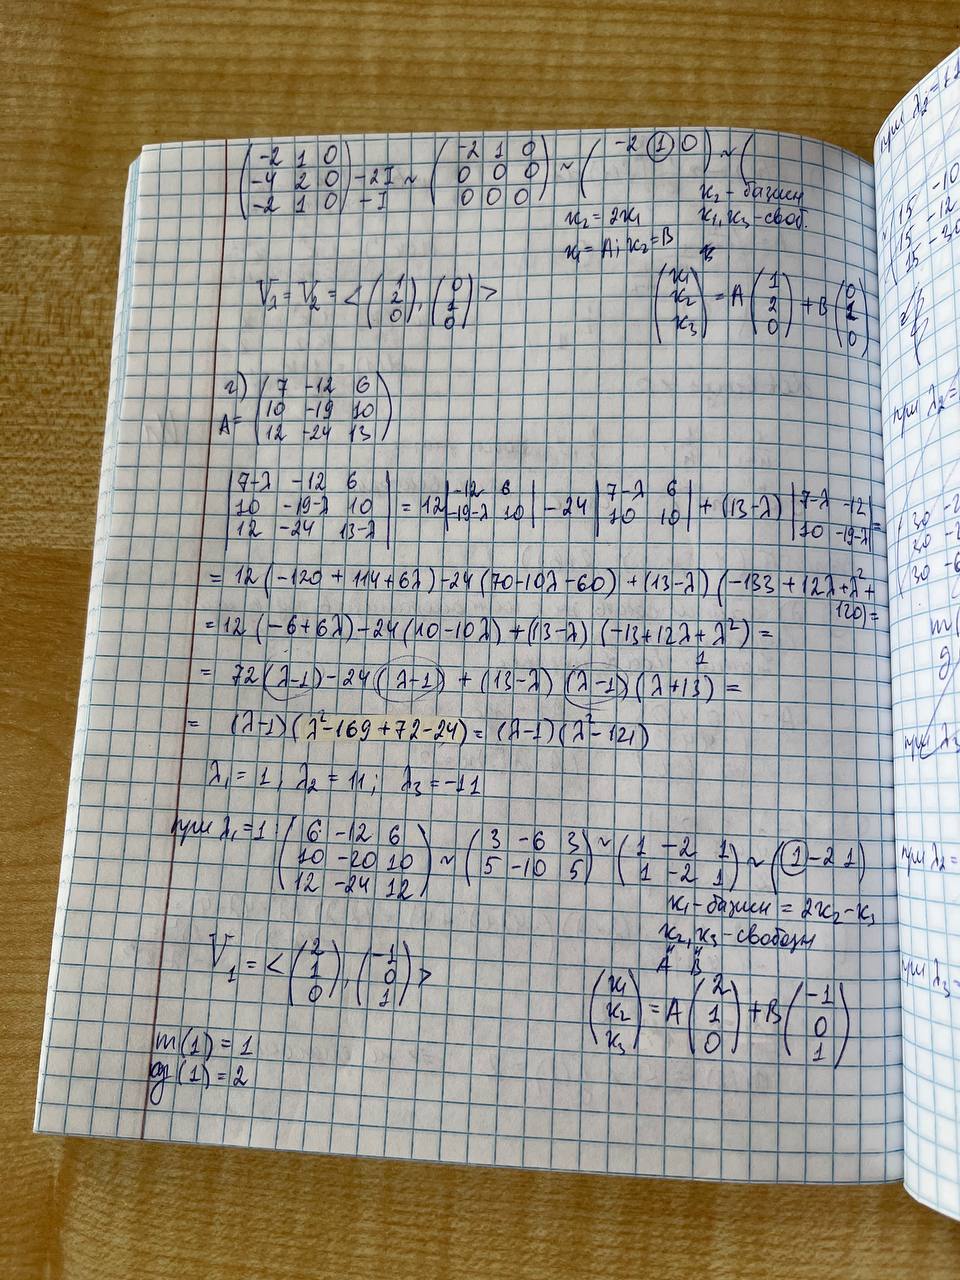 (-2 1 0; -4 2 0; -2 1 0) -2I -I ~ (-2 1 0; 0 0 0; 0 0 0) ~ (-2 1 0) ~ (
x₂ - базисн
x₂ = 2x₁ x₁, x₃ - своб.
x₁ = A; x₂ = B
V₁ = V₂ = <(1; 2; 0), (0; 1; 0)> (x₁; x₂; x₃) = A(1; 2; 0) + B(0; 1; 0)
г)
A = (7 -12 6; 10 -19 10; 12 -24 13)
|7-λ -12 6; 10 -19-λ 10; 12 -24 13-λ| = 12|-12 6; -19-λ 10| -24|7-λ 6; 10 10| + (13-λ)|7-λ -12; 10 -19-λ| =
= 12(-120 + 114+6λ) -24(70-10λ-60) + (13-λ)(-133 + 12λ+λ²+
120) =
= 12(-6+6λ) -24(10-10λ) + (13-λ)(-13+12λ+λ²) =
= 72(λ-1) -24(λ-1) + (13-λ)(λ-1)(λ+13) =
= (λ-1)(λ²-169+72-24) = (λ-1)(λ²-121)
λ₁ = 1; λ₂ = 11; λ₃ = -11
при λ₁=1: (6 -12 6; 10 -20 10; 12 -24 12) ~ (3 -6 3; 5 -10 5) ~ (1 -2 1; 1 -2 1) ~ (1 -2 1)
x₁ - базисн = 2x₂ - x₃
x₂, x₃ - свободн
A B
V₁ = <(2; 1; 0), (-1; 0; 1)> (x₁; x₂; x₃) = A(2; 1; 0) + B(-1; 0; 1)
m(1) = 1
g(1) = 2
при λ₂=
15 -10
15 -12
15 -30
при λ₂=
30 -2
30 -2
30 -6
m(
g(
при λ₃
при λ₂=
при λ₃=